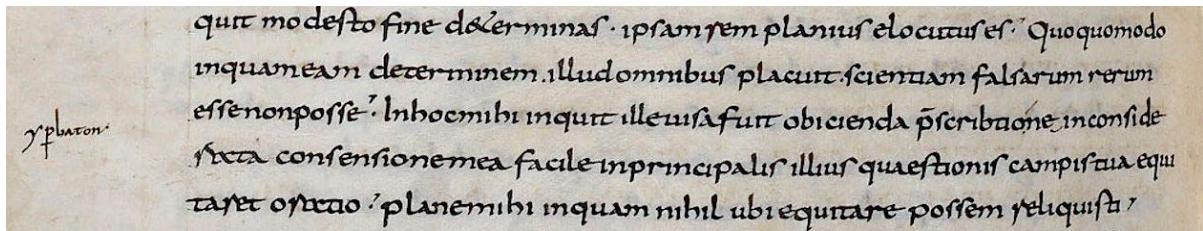 quit modesto fine determinas · ipsam rem planius elocutus es · Quoquomodo
inquam eam determinem . illud omnibus placuit . scientiam falsarum rerum
esse non posse · In hoc mihi inquit ille uisa fuit obicienda p̄scribtione inconside
rata consensione mea facile in principalis illius quaestionis campis tua equi
taret oratio · plane mihi inquam nihil ubi equitare possem reliquisti
yꝑbaton ·